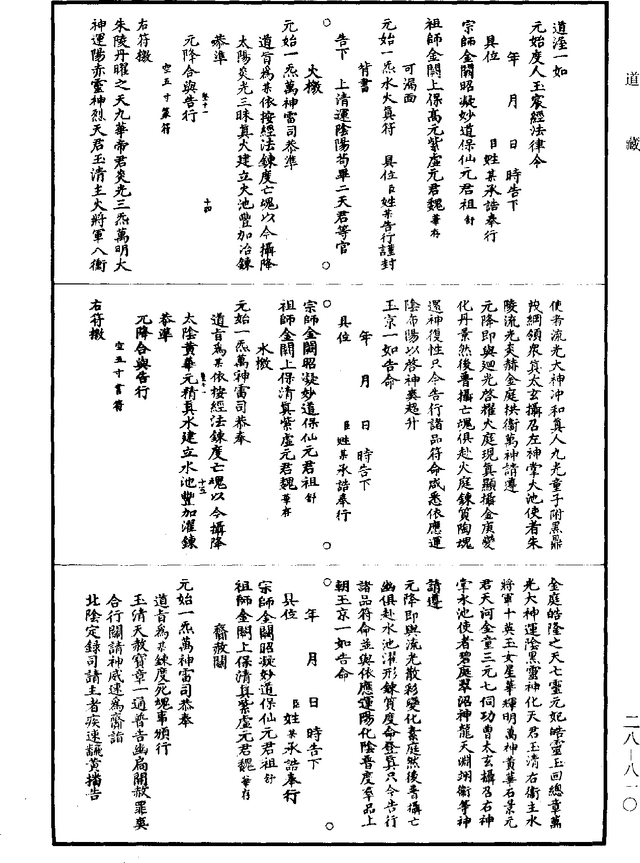 道溼一如
元始度人玉宸經法律令
年　月　日　時告下
具位　臣姓某承誥奉行
宗師金闕昭凝妙道保仙元君祖 舒
祖師金闕上保高元紫虛元君魏 華存
可漏面
元始一炁水火真符　具位臣姓某告行謹封
背書
告下　上清運陰陽苟畢二天君等官
火檄
元始一炁萬神雷司恭準
道旨爲某依按經法鍊度亡魂以今攝降
太陽炎光三昧真火建立火池豐加冶鍊
恭準
元降合與告行
空五寸篆符
右符檄
朱陵丹曜之天九華帝君炎光三炁萬明大
神運陽赤靈神烈天君玉清主火將軍八衝
使者流光大神冲和真人九光童子附黑鼎
陵流光炎赫金庭拱衛萬神請遵
元降即與廻光啓耀火庭現真顯攝金庚變
化丹景然後普攝亡魂俱赴火庭鍊質陶魂
還神復性只今告行諸品符命咸悉依應運
陰布陽以啓神奭超升
玉京一如告命
年　月　日　時告下
具位　臣姓某承誥奉行
宗師金闕昭凝妙道保仙元君祖 舒
祖師金闕上保清真紫虛元君魏 華存
水檄
元始一炁萬神雷司恭奉
道旨爲某依按經法鍊度亡魂以今攝降
太陰黃華元精真水建立水池豐加濯鍊
恭準
元降合與告行
空五寸書符
右符檄
金庭皓隆之天七靈元妃皓靈玉回總章萬
光大神運陰黑靈神化天君玉清右衝主水
將軍十英玉女星華輝明萬神黃華石景元
君天河金童三元七伺功曹太玄攝召右神
掌水池使者碧庭翠沼神龍天淵翊衛等神
請遵
元降即與流光散彩變化素庭然後普攝亡
幽俱赴水池濯形鍊質度命登真只今告行
諸品符命並與依應運陽化陰普度率品上
朝玉京一如告命
年　月　日　時告下
具位　臣姓某承誥奉行
宗師金闕昭凝妙道保仙元君祖 舒
祖師金闕上保清真紫虛元君魏 華存
齎赦關
元始一炁萬神雷司恭奉
道旨爲某鍊度死魂事頒行
玉清天赦寶章一通普告幽扃開赦罪爽
合行關請神威速爲齎詣
北陰定錄司請主者疾速謄黃播告
道藏
二八—八一〇